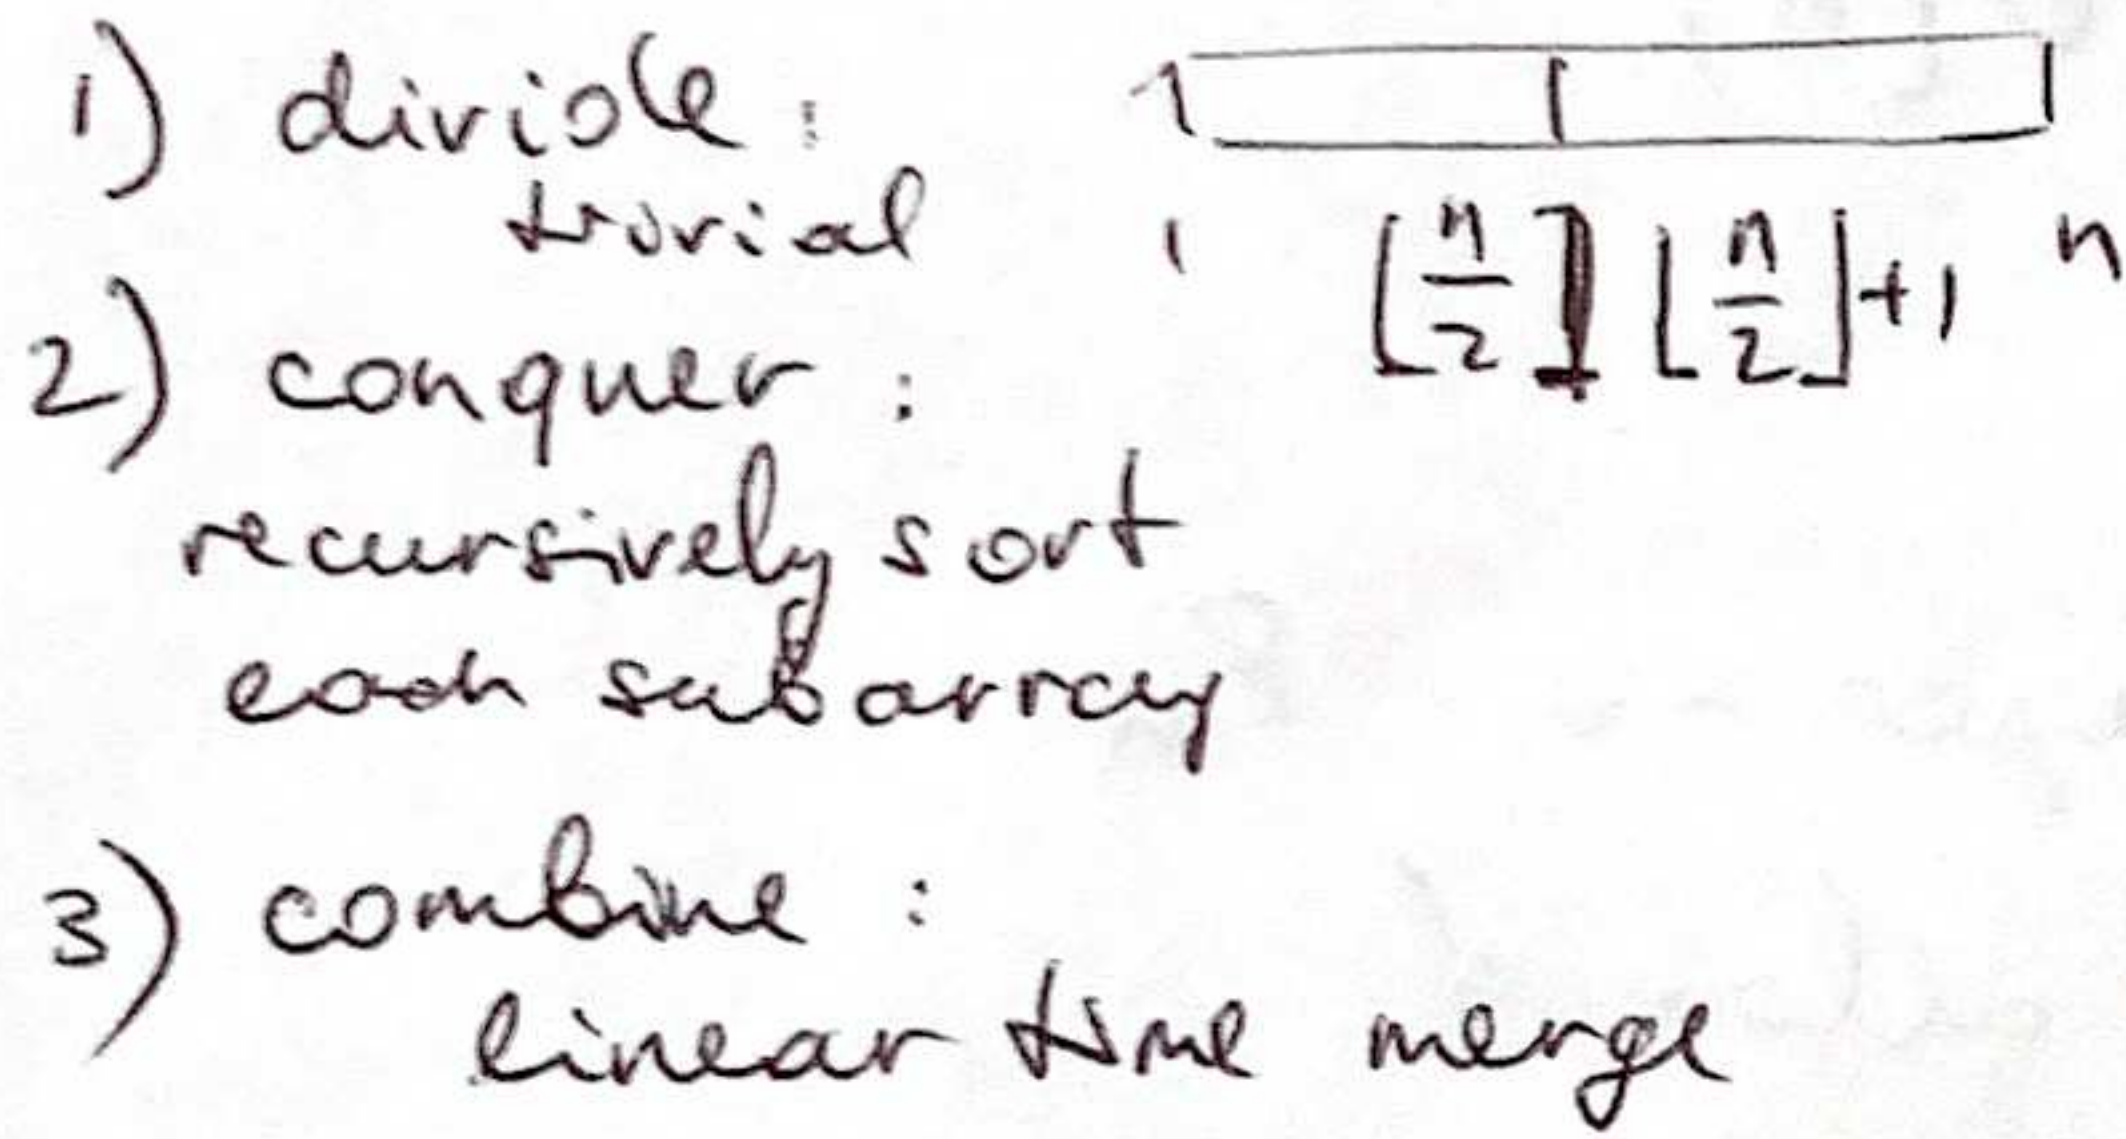 1) divide:
trivial
1 ⌊n/2⌋ ⌊n/2⌋+1 n
2) conquer:
recursively sort
each subarray
3) combine:
linear time merge